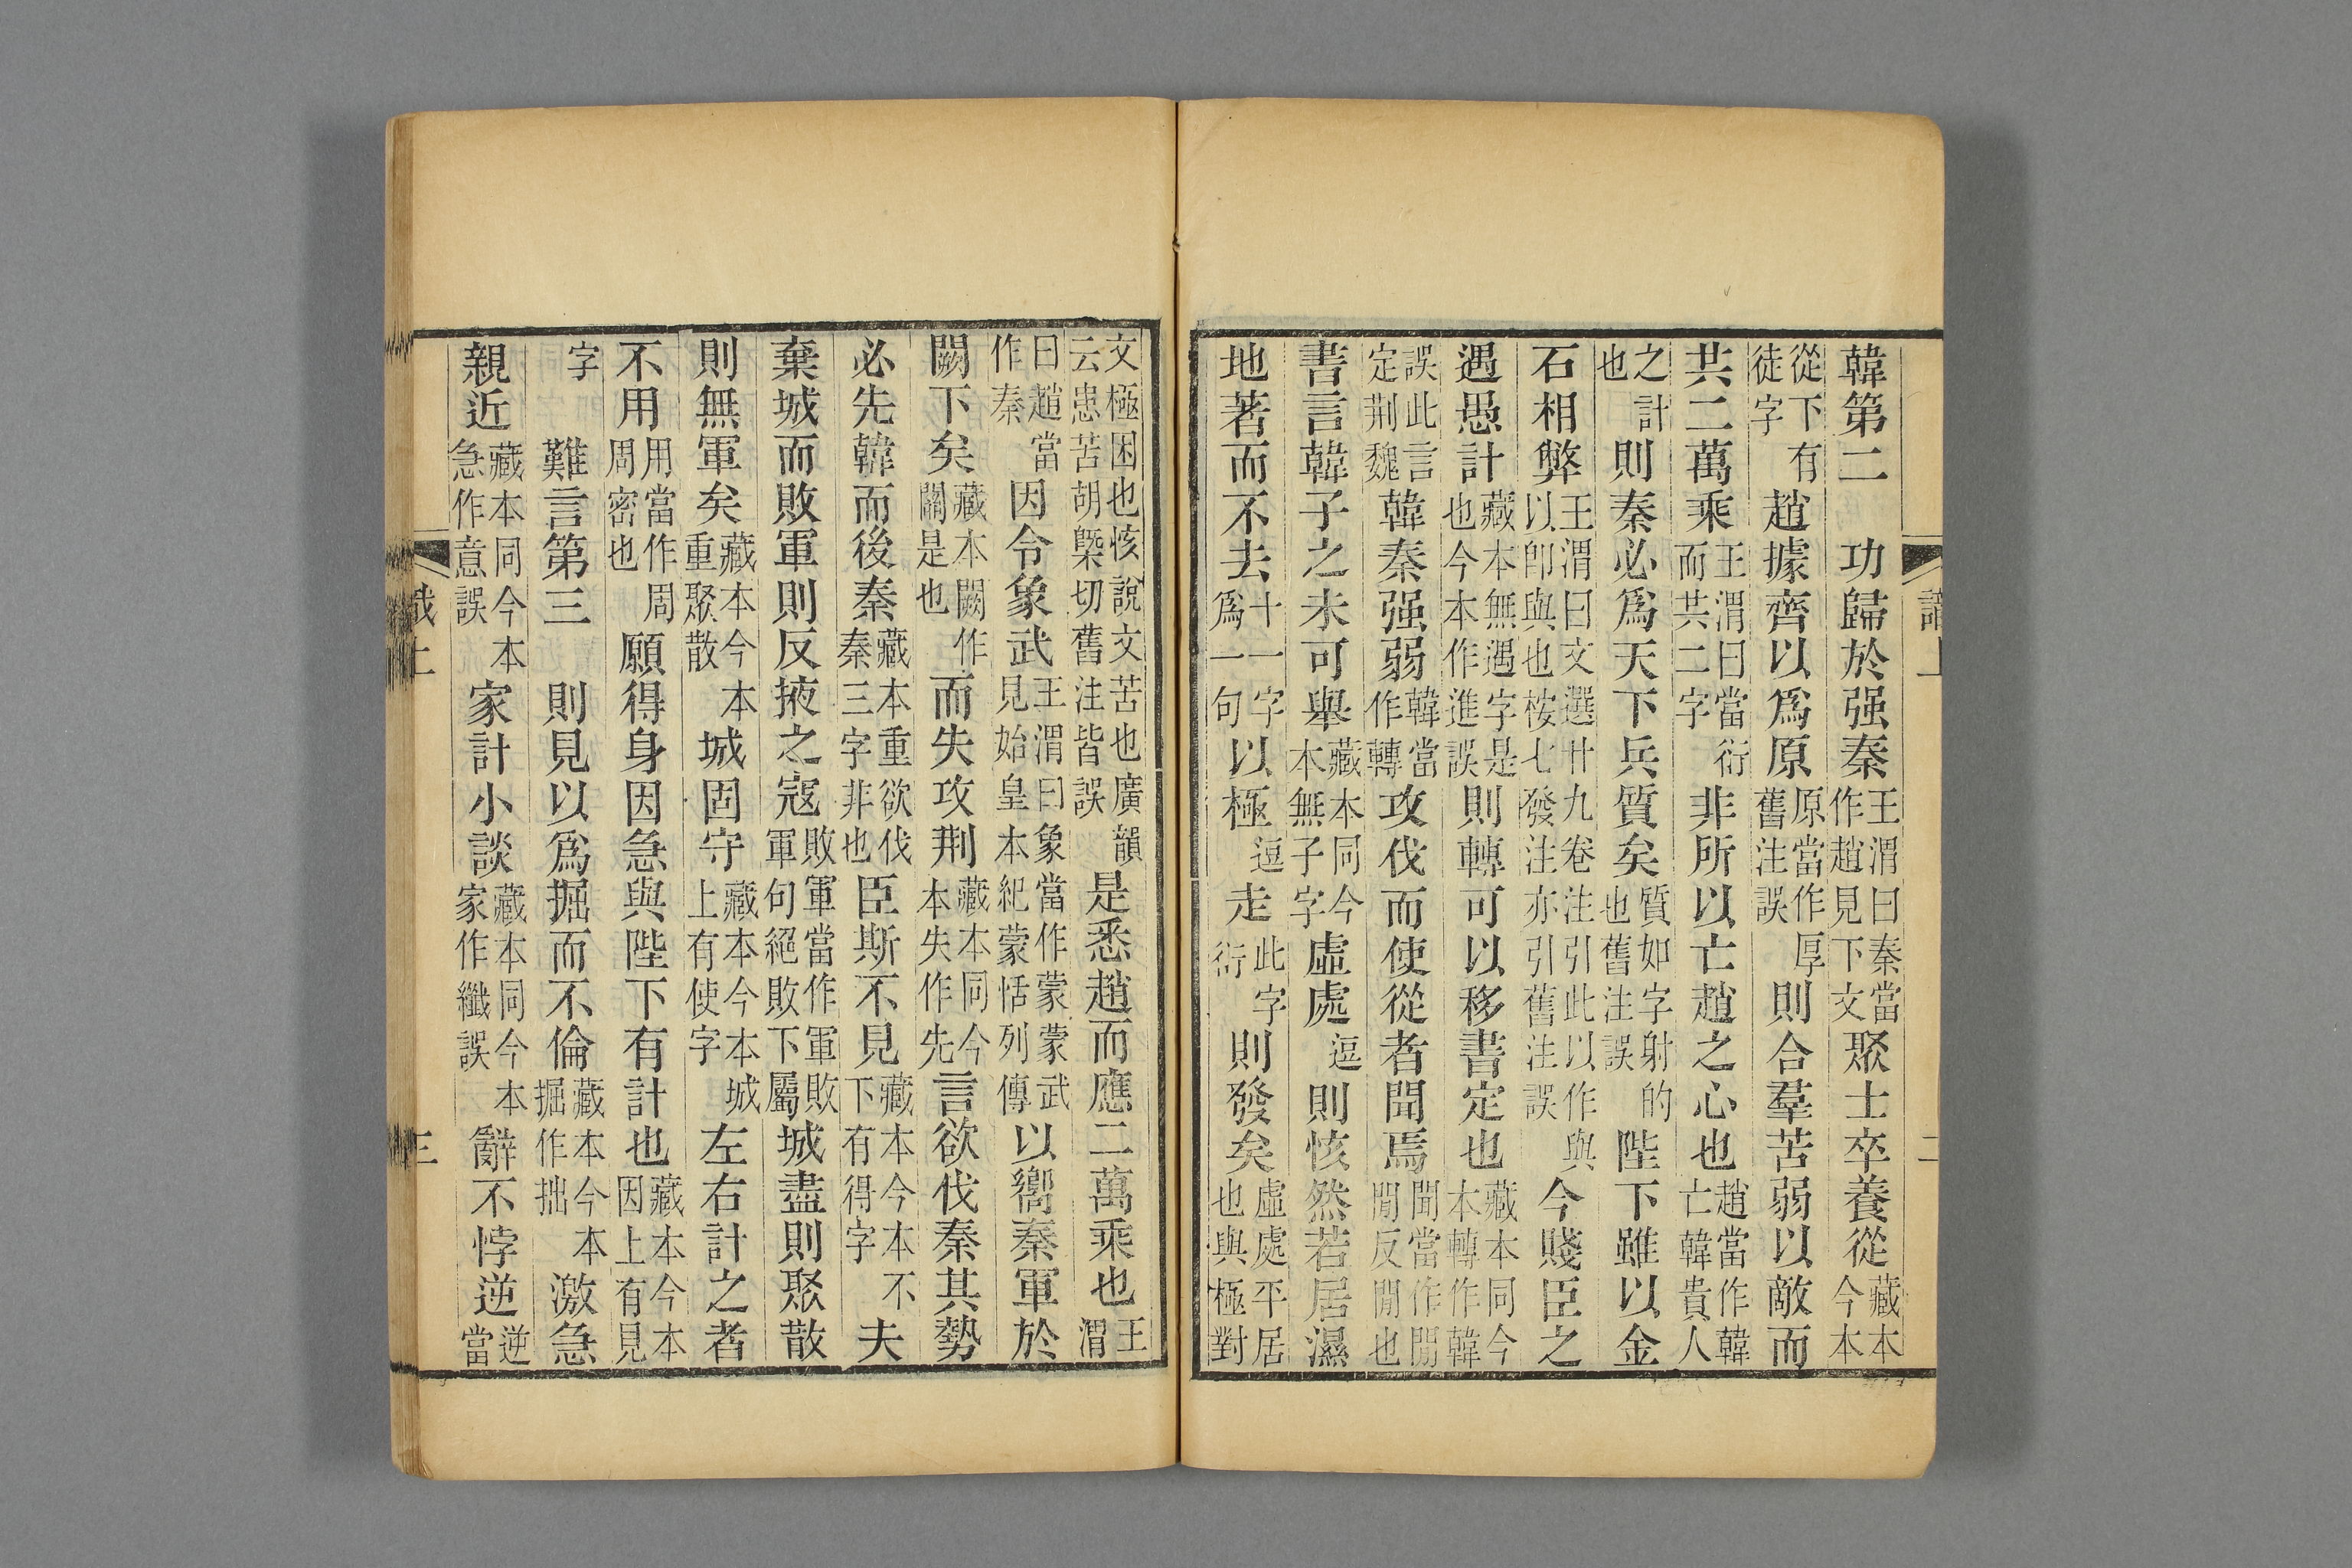 識上
二
韓第二　功歸於强秦王渭曰秦當作趙見下文聚士卒養從藏本今本
從下有徒字趙據齊以爲原原當作厚舊注誤則合羣苦弱以敵而
共二萬乘王渭曰當衍而共二字非所以亡趙之心也趙當作韓亡韓貴人
之計也則秦必爲天下兵質矣質如字射的也舊注誤陛下雖以金
石相弊王渭曰文選廿九卷注引此以作與以卽與也桉七發注亦引舊注誤今賤臣之
遇愚計藏本無遇字是也今本作進誤則轉可以移書定也藏本同今本轉作韓
誤此言定荆魏韓秦强弱韓當作轉攻伐而使從者聞焉聞當作閒閒反閒也
書言韓子之未可舉藏本同今本無子字虛處逗則恢然若居濕
地著而不去十一字爲一句以極逗走此字衍則發矣虛處平居也與極對
文極困也恢說文苦也廣韻云患苦胡槩切舊注皆誤是悉趙而應二萬乘也王渭
曰趙當作秦因令象武王渭曰象當作蒙蒙武見始皇本紀蒙恬列傳以嚮秦軍於
闕下矣藏本闕作關是也而失攻荆藏本同今本失作先言欲伐秦其勢
必先韓而後秦藏本重欲伐秦三字非也臣斯不見藏本今本不下有得字夫
棄城而敗軍則反掖之寇敗軍當作軍敗軍句絕敗下屬城盡則聚散
則無軍矣藏本今本重聚散城固守藏本今本城上有使字左右計之者
不用用當作周周密也願得身因急與陛下有計也藏本今本因上有見
字
難言第三　則見以爲掘而不倫藏本今本掘作拙激急
親近藏本同今本急作意誤家計小談藏本同今本家作纖誤辭不悖逆逆當
識上
三